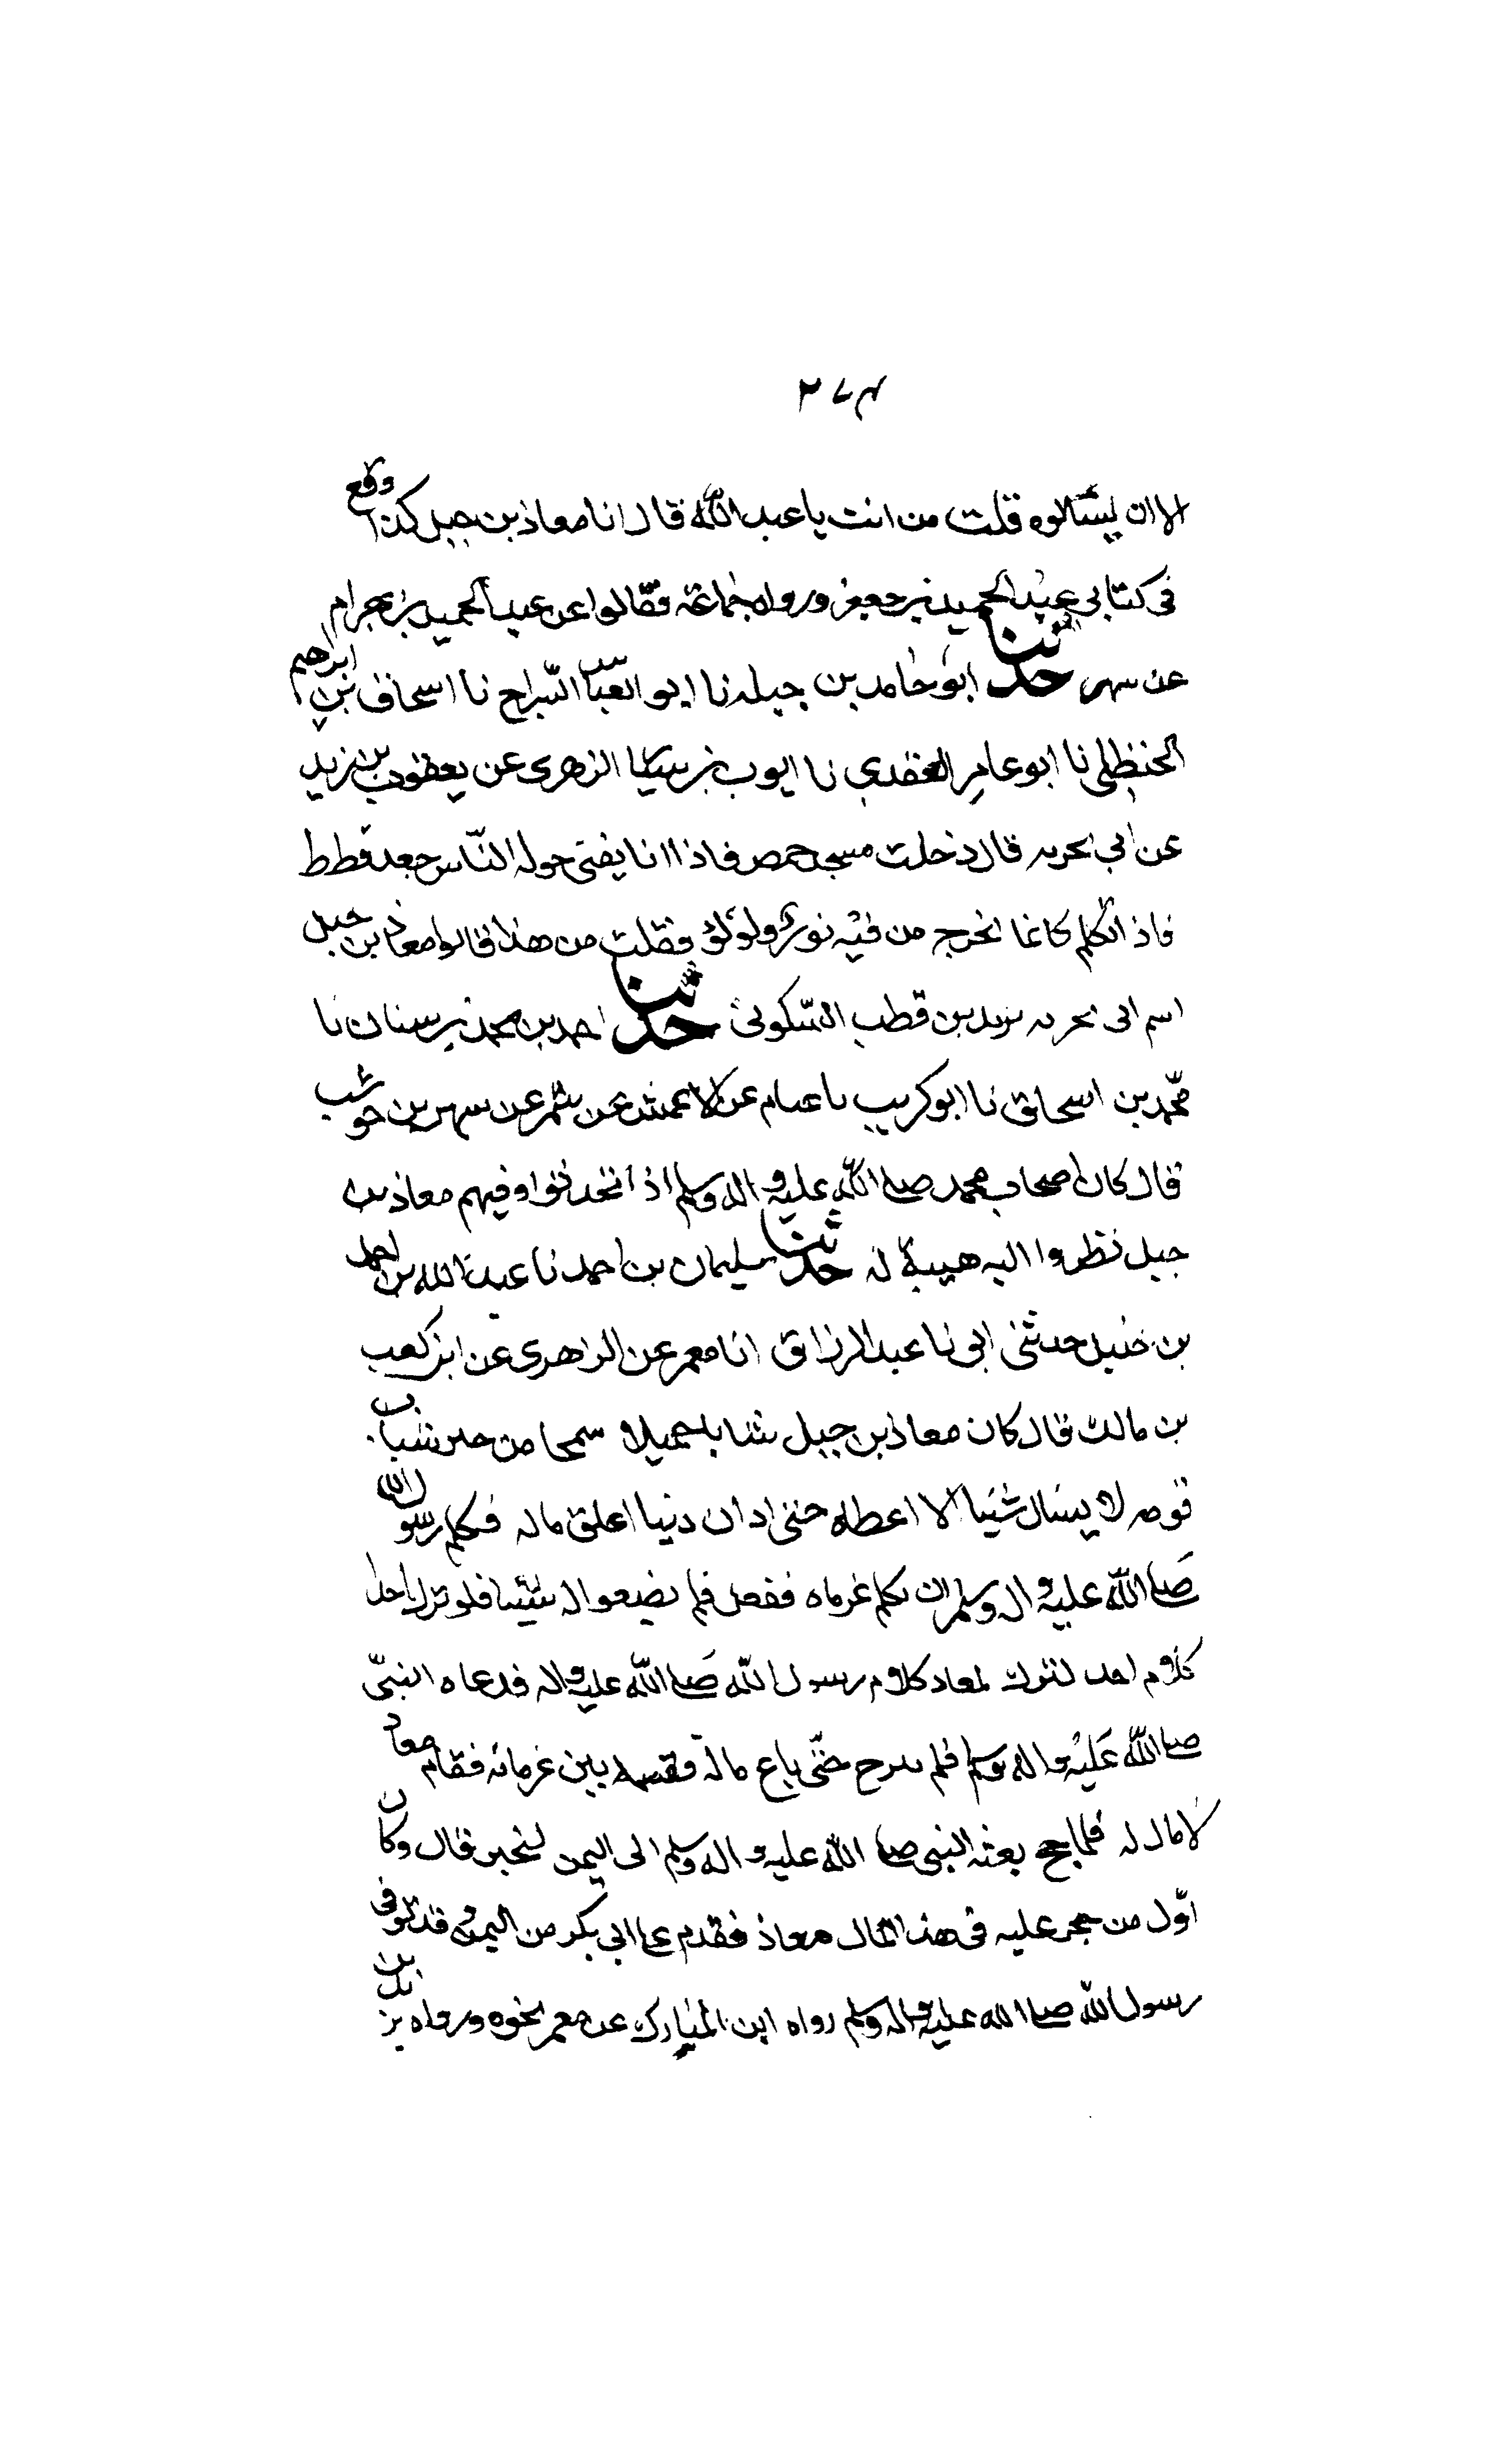 ۲۷۴
الا ان يسألوه قلت من انت يا عبد الله قال انا معاذ بن جبل كذا وقع
فى كتابى عبد الحميد بن جعفر ورواه جماعة فقالوا عن عبد الحميد بن بهرام
عن شهر حدثنا ابو حامد بن جبله نا ابو العباس السراج نا اسحاق بن ابراهيم
الحنظلى نا ابو عامر العقدي نا ايوب بن سيار الزهرى عن يعقوب بن زيد
عن ابي بحريه قال دخلت مسجد حمص فاذا انا بفتى حوله الناس جعد قطط
فاذا تكلم كانما يخرج من فيه نور ولؤلؤ فقلت من هذا قالوا معاذ بن جبل
اسم ابى بحريه يزيد بن قطب السكونى حدثنا احمد بن محمد بن سنان نا
محمد بن اسحاق نا ابو كريب نا عثام عن الاعمش عن شمر عن شهر بن حوشب
قال كان اصحاب محمد صلى الله عليه و اله وسلم اذا تحدثوا وفيهم معاذ بن
جبل نظروا اليه هيبة له حدثنا سليمان بن احمد نا عبد الله بن احمد
بن حنبل حدثنى ابى نا عبد الرزاق انا معمر عن الزهرى عن ابن كعب
بن مالك قال كان معاذ بن جبل شابا جميلا سمحا من خير شباب
قومه لا يسال شيئا الا اعطاه حتى ادان دينا اغلق ماله فكلم رسول الله
صلى الله عليه و اله وسلم ان يكلم غرماه ففعل فلم يضعوا له شيئا فلو ترك احد
كلام احد لترك لمعاذ كلام رسول الله صلى الله عليه و اله فدعاه النبى
صلى الله عليه و اله وسلم فلم يبرح حتى باع ماله وقسمه بين غرمائه فقام معاذ
لا مال له فلما حج بعثه النبى صلى الله عليه و اله وسلم الى اليمن ليجبر قال وكان
اول من حجر عليه فى هذا المال معاذ فقدم على ابى بكر من اليمن وقد توفى
رسول الله صلى الله عليه و اله وسلم رواه ابن المبارك عن معمر نحوه ورواه